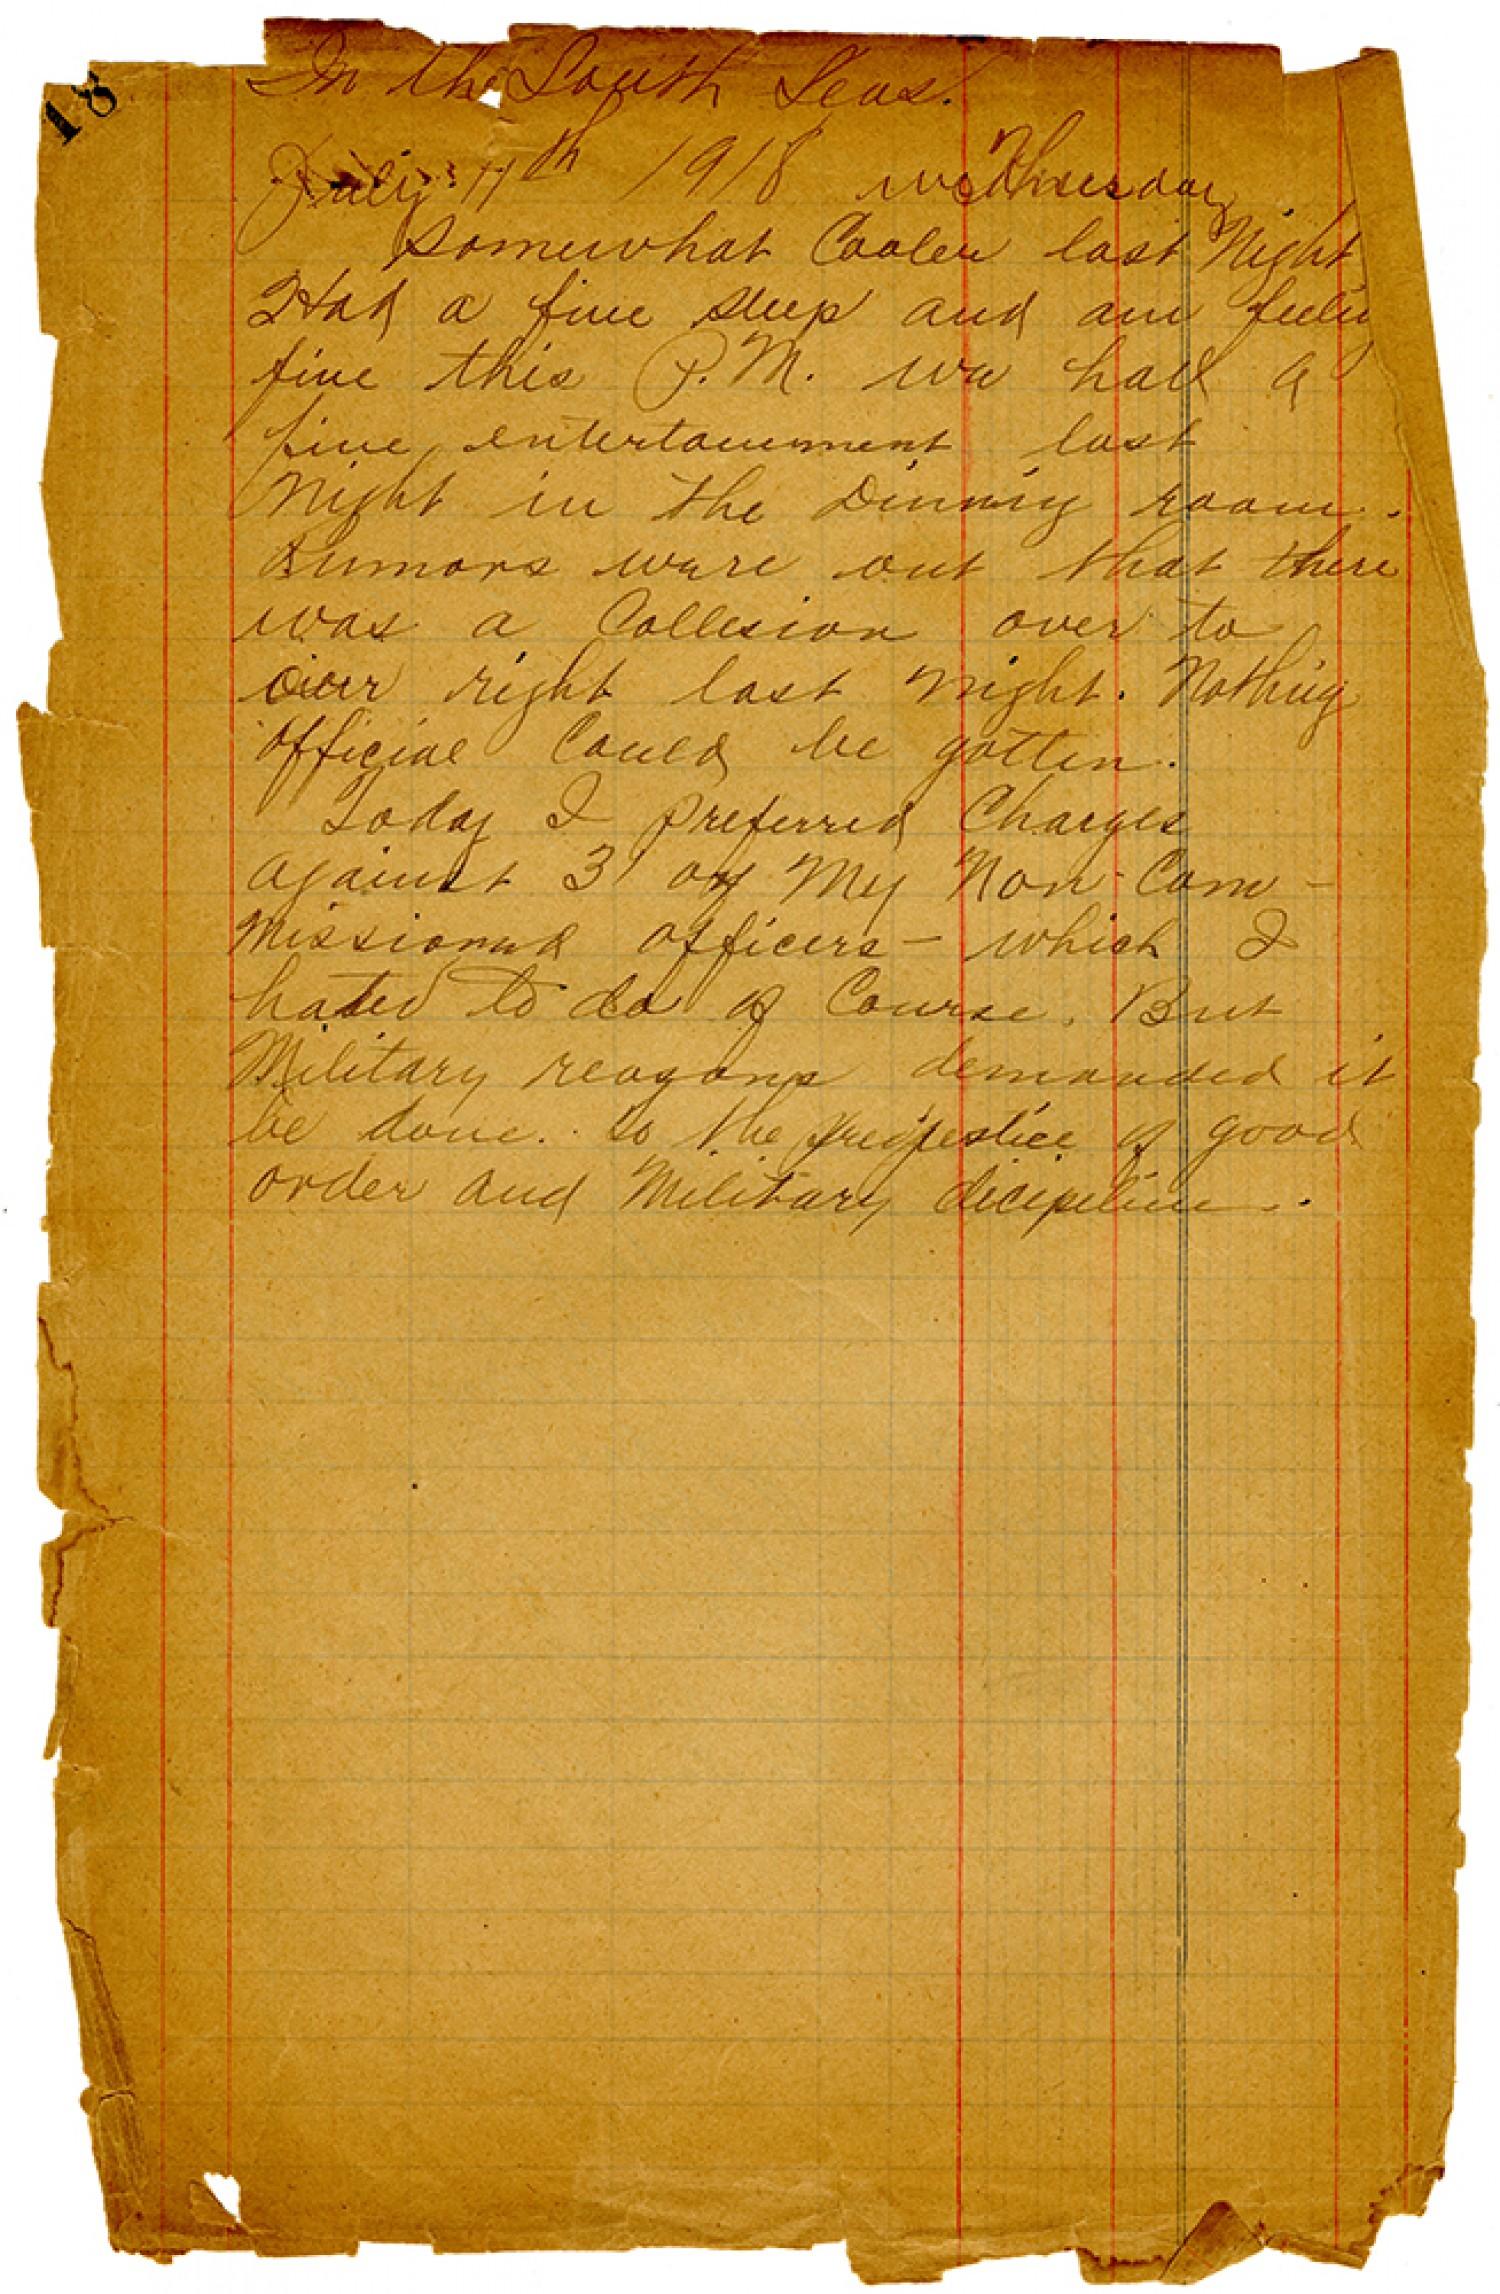 18
In the South Seas.
July 11th 1918 Thursday
Somewhat Cooler last Night
Had a fine sleep and am feelin
fine this P.M. we had a
fine entertainment last
Night in the Dinning room.
Rumors were out that there
was a Collesion over to
over right last night. Nothing
official Could be gotten.
Today I preferred Charges
against 3 of My Non-Com-
missioned officers- which I
hated to do of Course. But
Military reasons demanded it
be done. to the prejestice of good
order and Military dicipline.